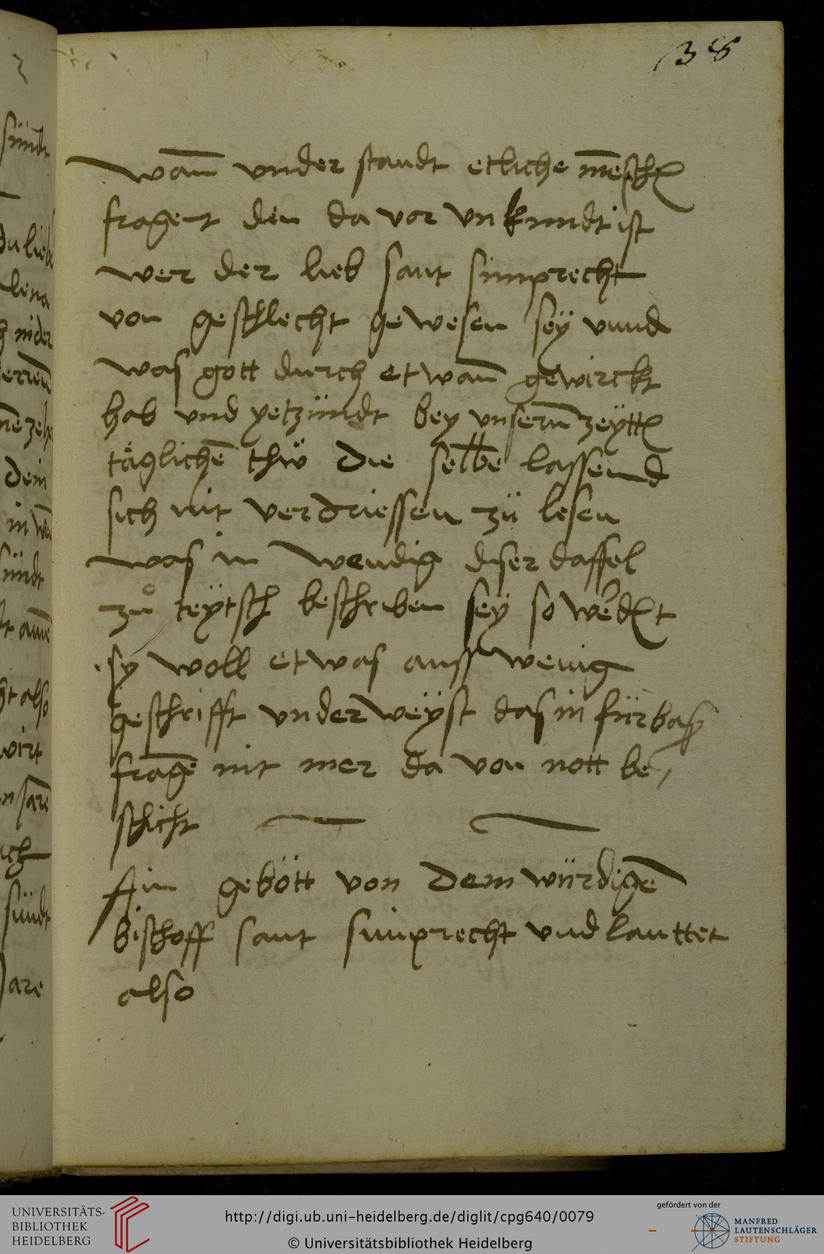 38
wan̄ vnder standt etliche mēsch
fragent den da vor vnkundt ist
wer der lieb sant simprecht
von geschlecht gewesen seÿ vnnd
was gott durch etwan̄ gewirckt
hab vnd yetzündt bey vnsern̄ zeÿtt
täglichē thü die selbe lassend
sich nit verdriessen zü lesen
was in wendig diser daffel
zů teÿtsch beschriben seÿ so werdt
sy woll etwas auss wenig
geschrifft vnderweÿst das in fürbas
frage nit mer da von nott be
schicht
Ain gebött von dem würdigē
bischoff sant simprecht vnd lauttet
also
UNIVERSITÄTS-
BIBLIOTHEK
HEIDELBERG
http://digi.ub.uni-heidelberg.de/diglit/cpg640/0079
© Universitätsbibliothek Heidelberg
gefördert von der
MANFRED
LAUTENSCHLÄGER
STIFTUNG